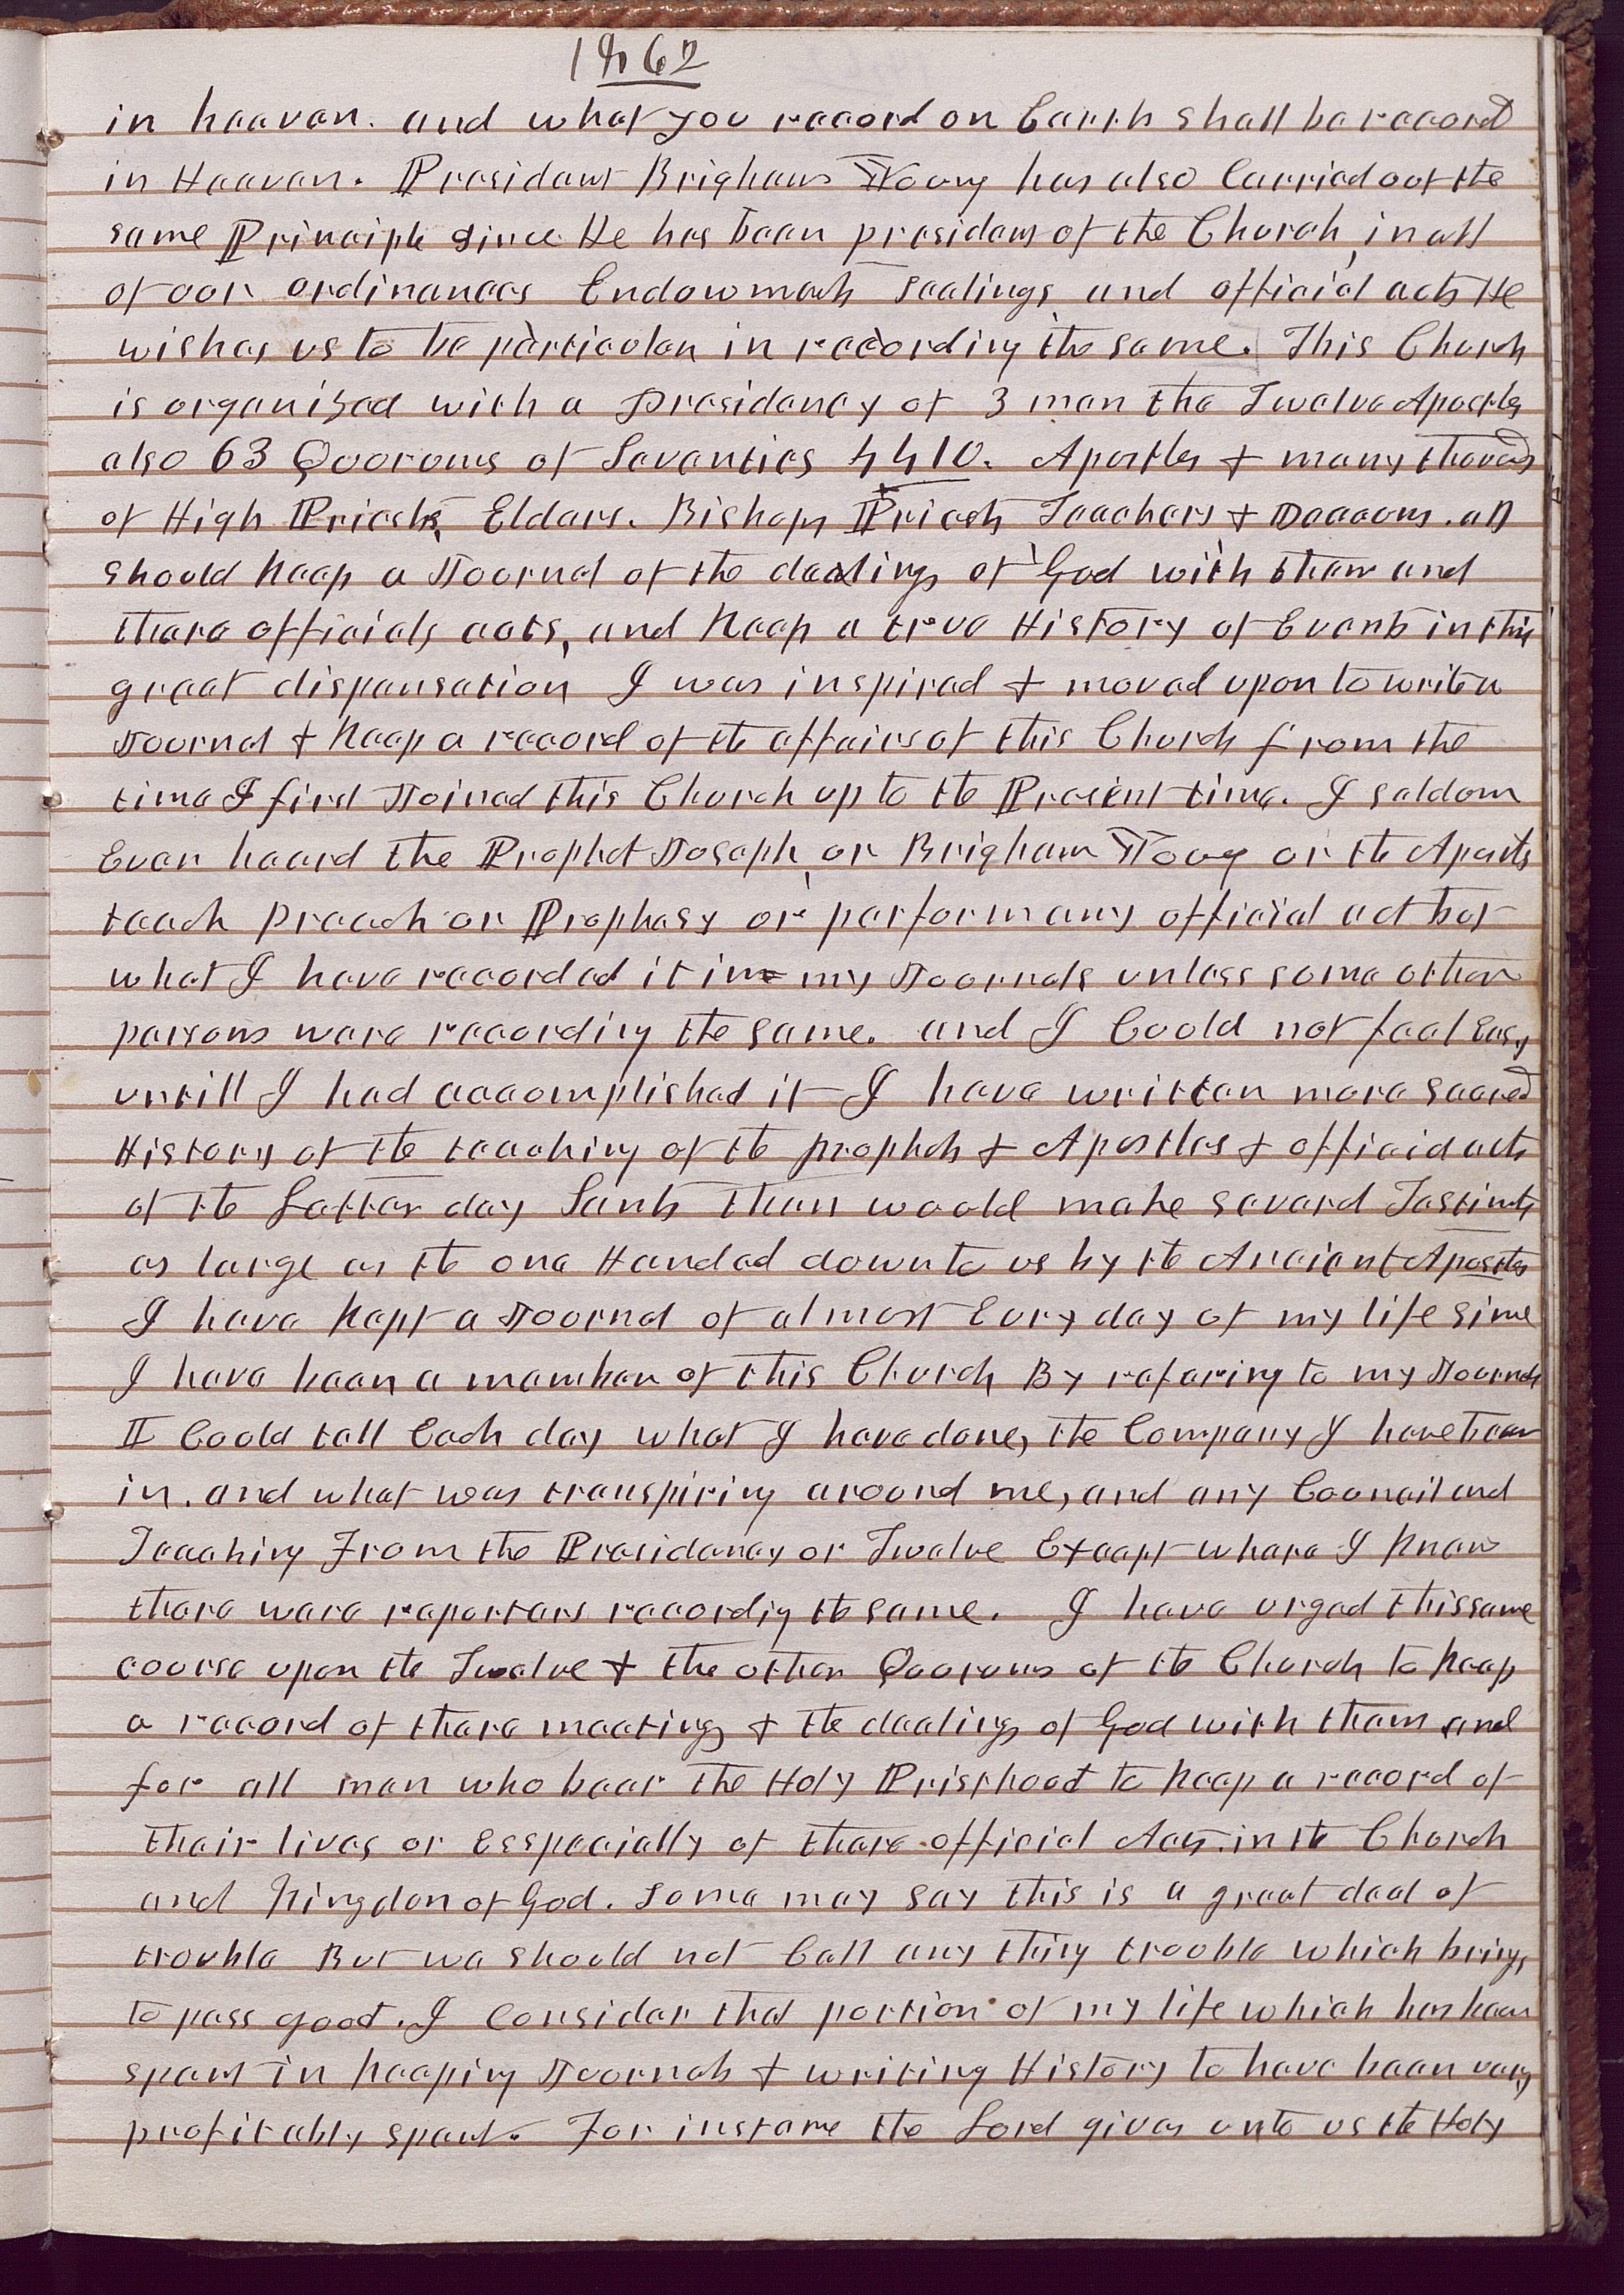 1862
in heaven. and what you record on Earth shall be record
in Heaven. President Brigham Young has also Carried out the
same Principle since He has been president of the Church, in all
of our ordinances Endowments Sealings and official acts He
wishes us to be particular in recording the same. This Church
is organized with a Presidency of 3 men the Twelve Apostles
also 63 Quorums of Seventies 4410. Apostles & many thousands
of High Priests, Elders. Bishops Priests Teachers & Deacons. all
should keep a Journal of the dealings of God with them and
there officials acts, and keep a true History of Events in this
great dispensation I was inspired & moved upon to write a
Journal & keep a record of the affairs of this Church from the
time I first Joined this Church up to the Present time. I seldom
Ever heard the Prophet Joseph, or Brigham Young or the Apostls
teach preach or Prophesy or perform any official act but
what I have recorded it in my Journals unless some other
persons were recording the same. and I Could not feel easy
untill I had accomplished it I have written more sacred
History of the teaching of the prophets & Apostles & official acts
of the Latter day Sants than would make several Testiments
as large as the one Handed down to us by the Ancient Apostles
I have kept a Journal of almost Evry day of my life since
I have been a member of this Church By refering to my Journals
I Could tell Each day what I have done, the Company I have been
in. and what was transpiring around me, and any Councail and
Teaching From the Presidency or Twelve Except where I knew
there were reporters recordig the same. I have urged this same
course upon the Twelve & the other Quorums of the Church to keep
a record of there meetings & the dealings of God with them and
for all men who bear the Holy Pristhood to keep a record of
their lives or esspecially of there official Acts in the Church
and Kingdon of God. Some may say this is a great deal of
trouble But we should not Call any thing trouble which brings
to pass good. I Consider that portion of my life which has been
spent in keeping Journals & writing History to have been very
profitably spent. For instance the Lord gives unto us the Holy